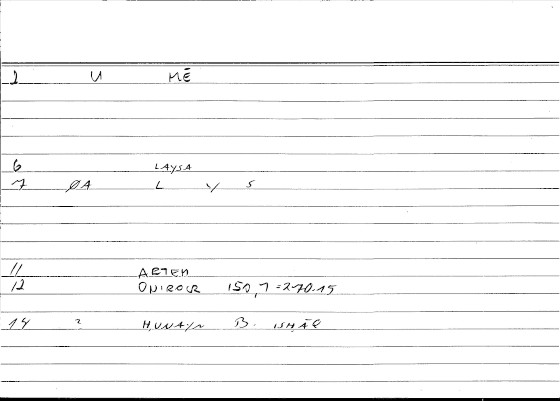 1 U MĒ
6 LAYSA
7 ØA L Y S
11 ARTEM
12 ONIROCR 150,7=270.15
14 ? ḤUNAYN B. ISḤĀQ